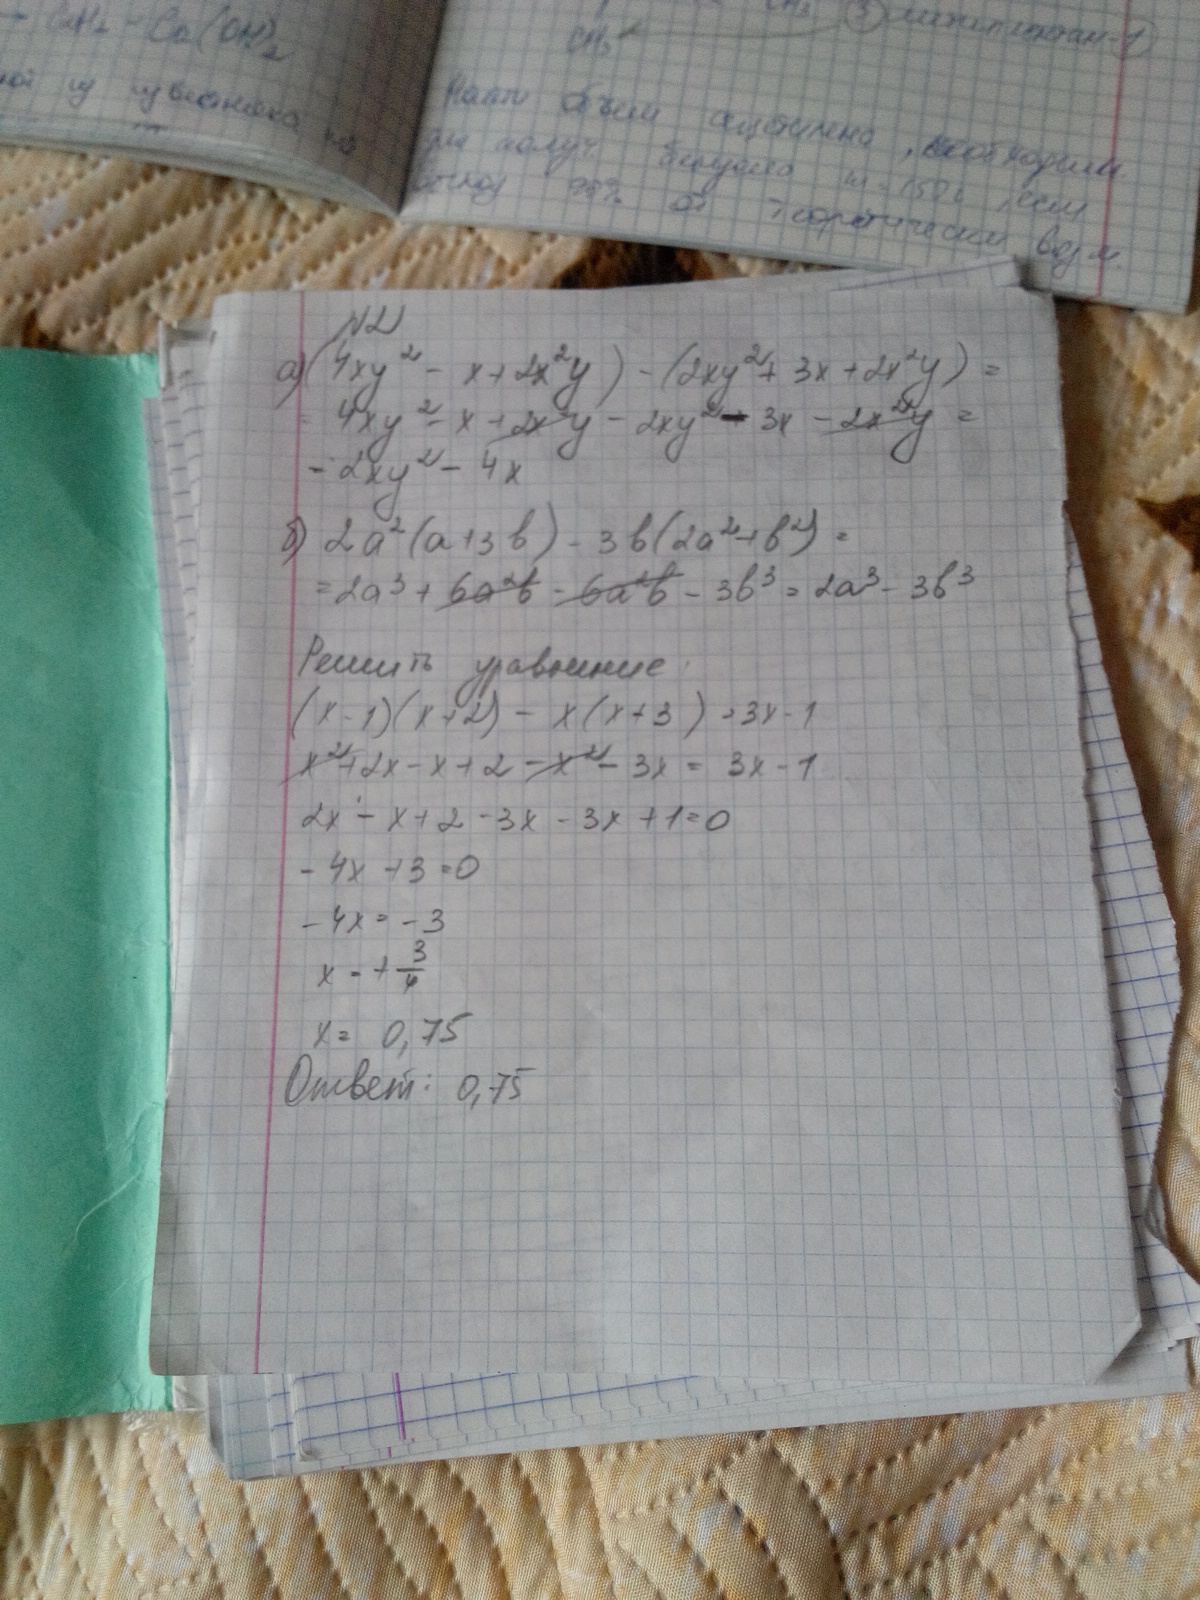 CH₃
Найти объем ацетилена, необходимый
для получ. бензола m=
выход 90% от теоретически возм.
N2
а) (4xy² - x + 2x²y) - (2xy² + 3x + 2x²y) =
= 4xy² - x + 2x²y - 2xy² - 3x - 2x²y =
- 2xy² - 4x
б) 2a²(a+3b) - 3b(2a²+b²) =
= 2a³ + 6a²b - 6a²b - 3b³ = 2a³ - 3b³
Решить уравнение:
(x-1)(x+2) - x(x+3) = 3x-1
x²+2x-x+2-x²-3x = 3x-1
2x - x + 2 - 3x - 3x + 1 = 0
- 4x + 3 = 0
- 4x = - 3
x = + 3/4
x = 0,75
Ответ: 0,75